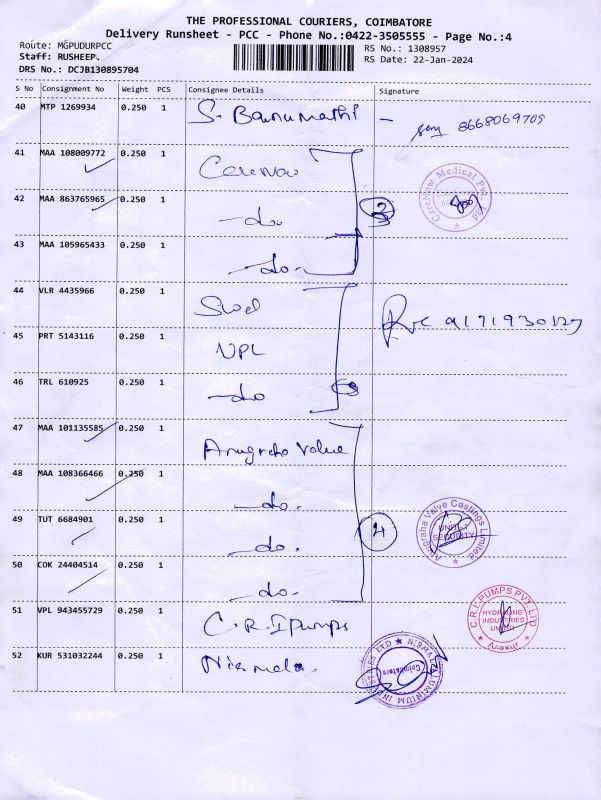 THE PROFESSIONAL COURIERS, COIMBATORE
Delivery Runsheet - PCC - Phone No.:0422-3505555 - Page No.:4
Route: MGPUDURPCC
RS No.: 1308957
Staff: RUSHEEP.
RS Date: 22-Jan-2024
DRS No.: DCJB130895704
S No Consignment No Weight PCS Consignee Details Signature
40 MTP 1269934 0.250 1 S. Banumathi - 8668069705
41 MAA 108009772 0.250 1 CareNow
CareNow Medical Pvt Ltd
42 MAA 863765965 0.250 1 -do.
3
43 MAA 105965433 0.250 1 -do-
44 VLR 4435966 0.250 1
45 PRT 5143116 0.250 1 NPL
46 TRL 610925 0.250 1 -do
47 MAA 101135585 0.250 1 Anugraha Value
48 MAA 108366466 0.250 1 -do.
49 TUT 6684901 0.250 1 -do.
4
Anugraha Valve Castings Limited
UNIT-I
SECURITY
50 COK 24404514 0.250 1 -do.
51 VPL 943455729 0.250 1 C.R.I Pumps
C.R.I. PUMPS PVT. LTD
HYDROLINE
INDUSTRIES
UNIT-I
52 KUR 531032244 0.250 1 Nirmala.
Coimbatore